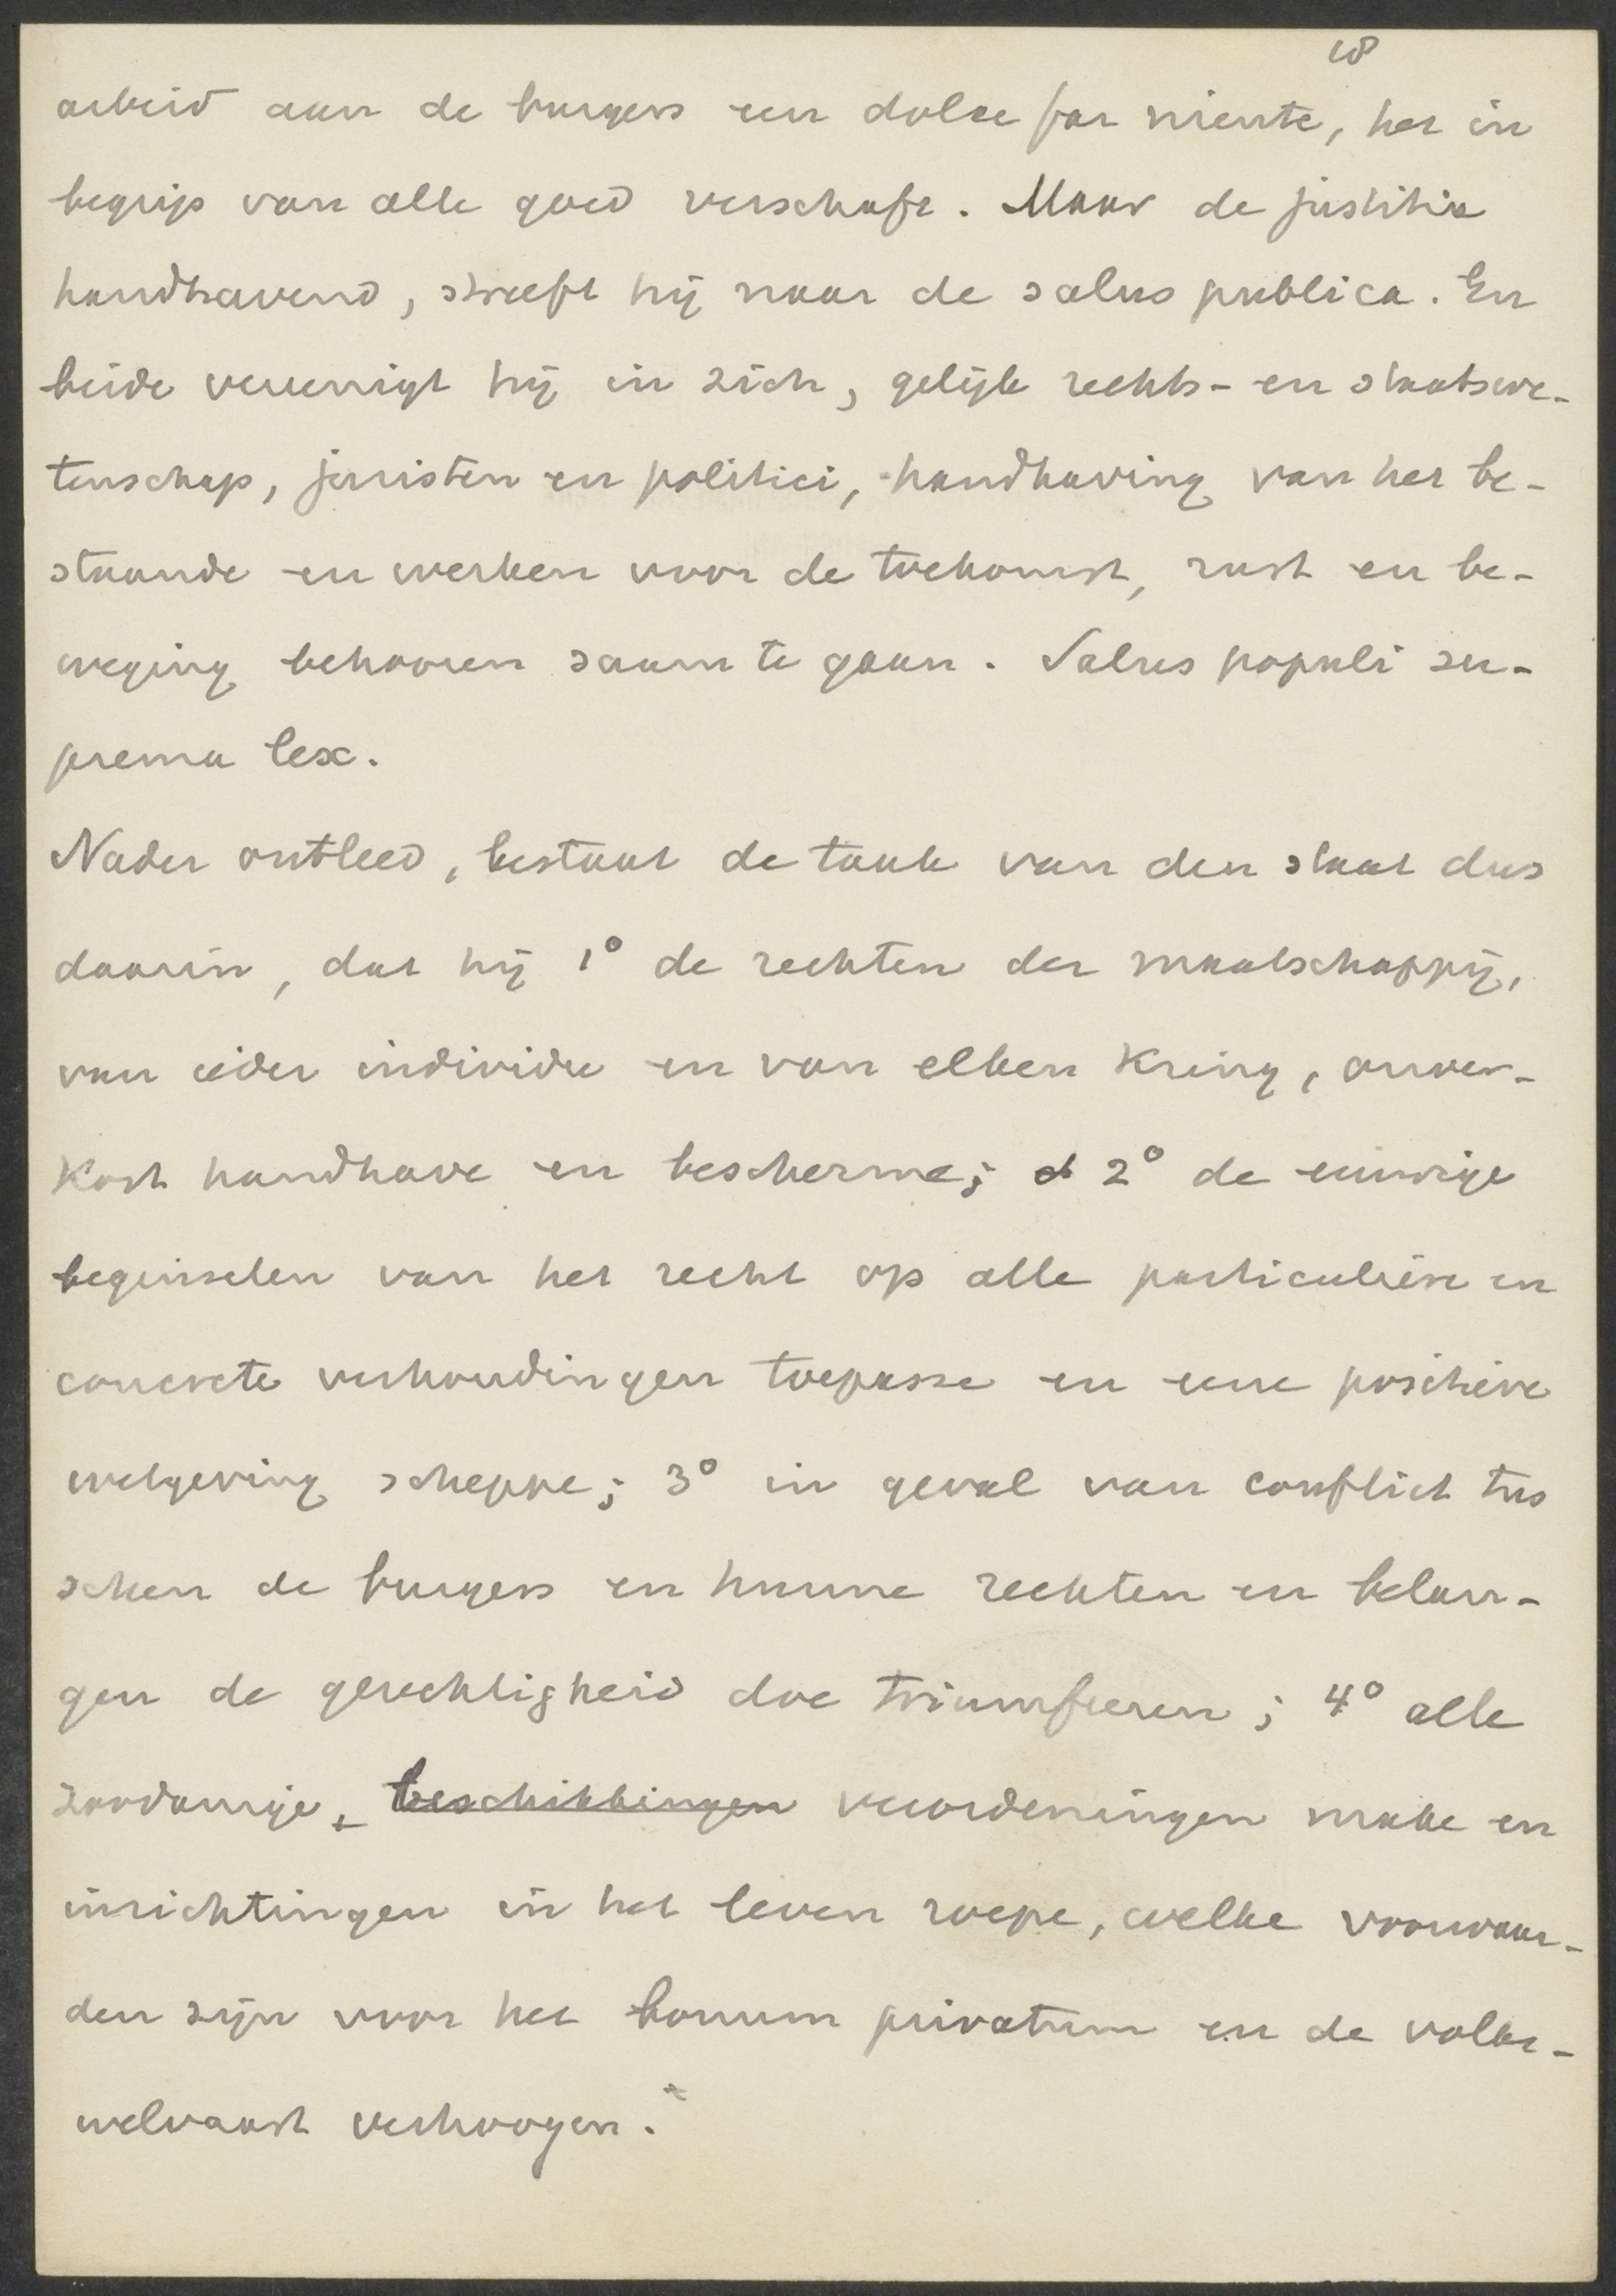 arbeid aan de burgers een dolce far niente, het in
begrip van alle goed verschaft. Maar de justitia
handhavend, streeft hij naar de salus publica. En
beide vereenigt hij in zich, gelijk rechts- en staatswe-
tenschap, juristen en politici, handhaving van het be-
staande en werken voor de toekomst, rust en be-
weging behooren saam te gaan. Salus populi su-
prema lex.
Nader ontleed, bestaat de taak van den staat dus
daarin, dat hij 1° de rechten der maatschappij,
van ieder individu en van elken kring, onver-
kort handhave en bescherme; 2° de eeuwige
beginselen van het recht op alle particuliere en
concrete verhoudingen toepasse en eene positieve
wetgeving scheppe; 3° in geval van conflict tus
schen de burgers en hunne rechten en belan-
gen de gerechtigheid doe triumfeeren; 4° alle
zoodanige beschikkingen verordeningen make en
inrichtingen in het leven roepe, welke voorwaar-
den zijn voor het bonum privatum en de volks-
welvaart verhoogen.